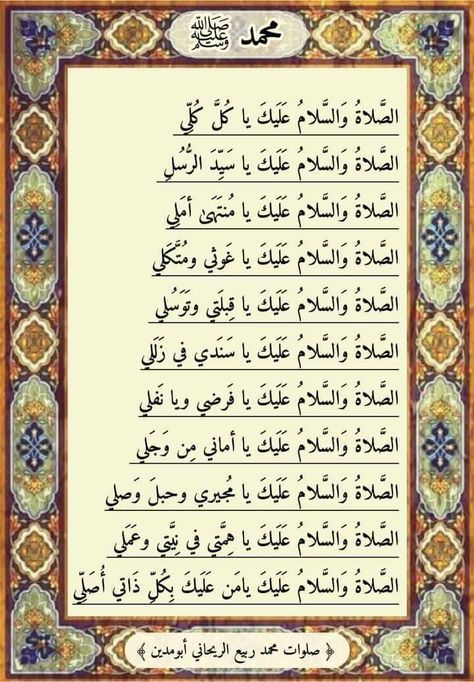 محمد ﷺ
الصَّلاةُ وَالسَّلامُ عَلَيكَ يا كُلَّ كُلِّي
الصَّلاةُ وَالسَّلامُ عَلَيكَ يا سَيِّدَ الرُّسُلِ
الصَّلاةُ وَالسَّلامُ عَلَيكَ يا مُنتَهَىٰ أمَلِي
الصَّلاةُ وَالسَّلامُ عَلَيكَ يا غَوثي ومُتَّكَلي
الصَّلاةُ وَالسَّلامُ عَلَيكَ يا قِبلَتي وتَوَسُلي
الصَّلاةُ وَالسَّلامُ عَلَيكَ يا سَنَدي في زَلَلي
الصَّلاةُ وَالسَّلامُ عَلَيكَ يا فَرضي ويا نَفلي
الصَّلاةُ وَالسَّلامُ عَلَيكَ يا أماني مِن وَجَلي
الصَّلاةُ وَالسَّلامُ عَلَيكَ يا مُجيري وحبلَ وَصلي
الصَّلاةُ وَالسَّلامُ عَلَيكَ يا هِمَّتي في نِيَّتي وعَمَلي
الصَّلاةُ وَالسَّلامُ عَلَيكَ يامَن عَلَيكَ بِكُلِّ ذَاتي أُصَلِّي
﴿ صلوات محمد ربيع الريحاني أبومدين ﴾